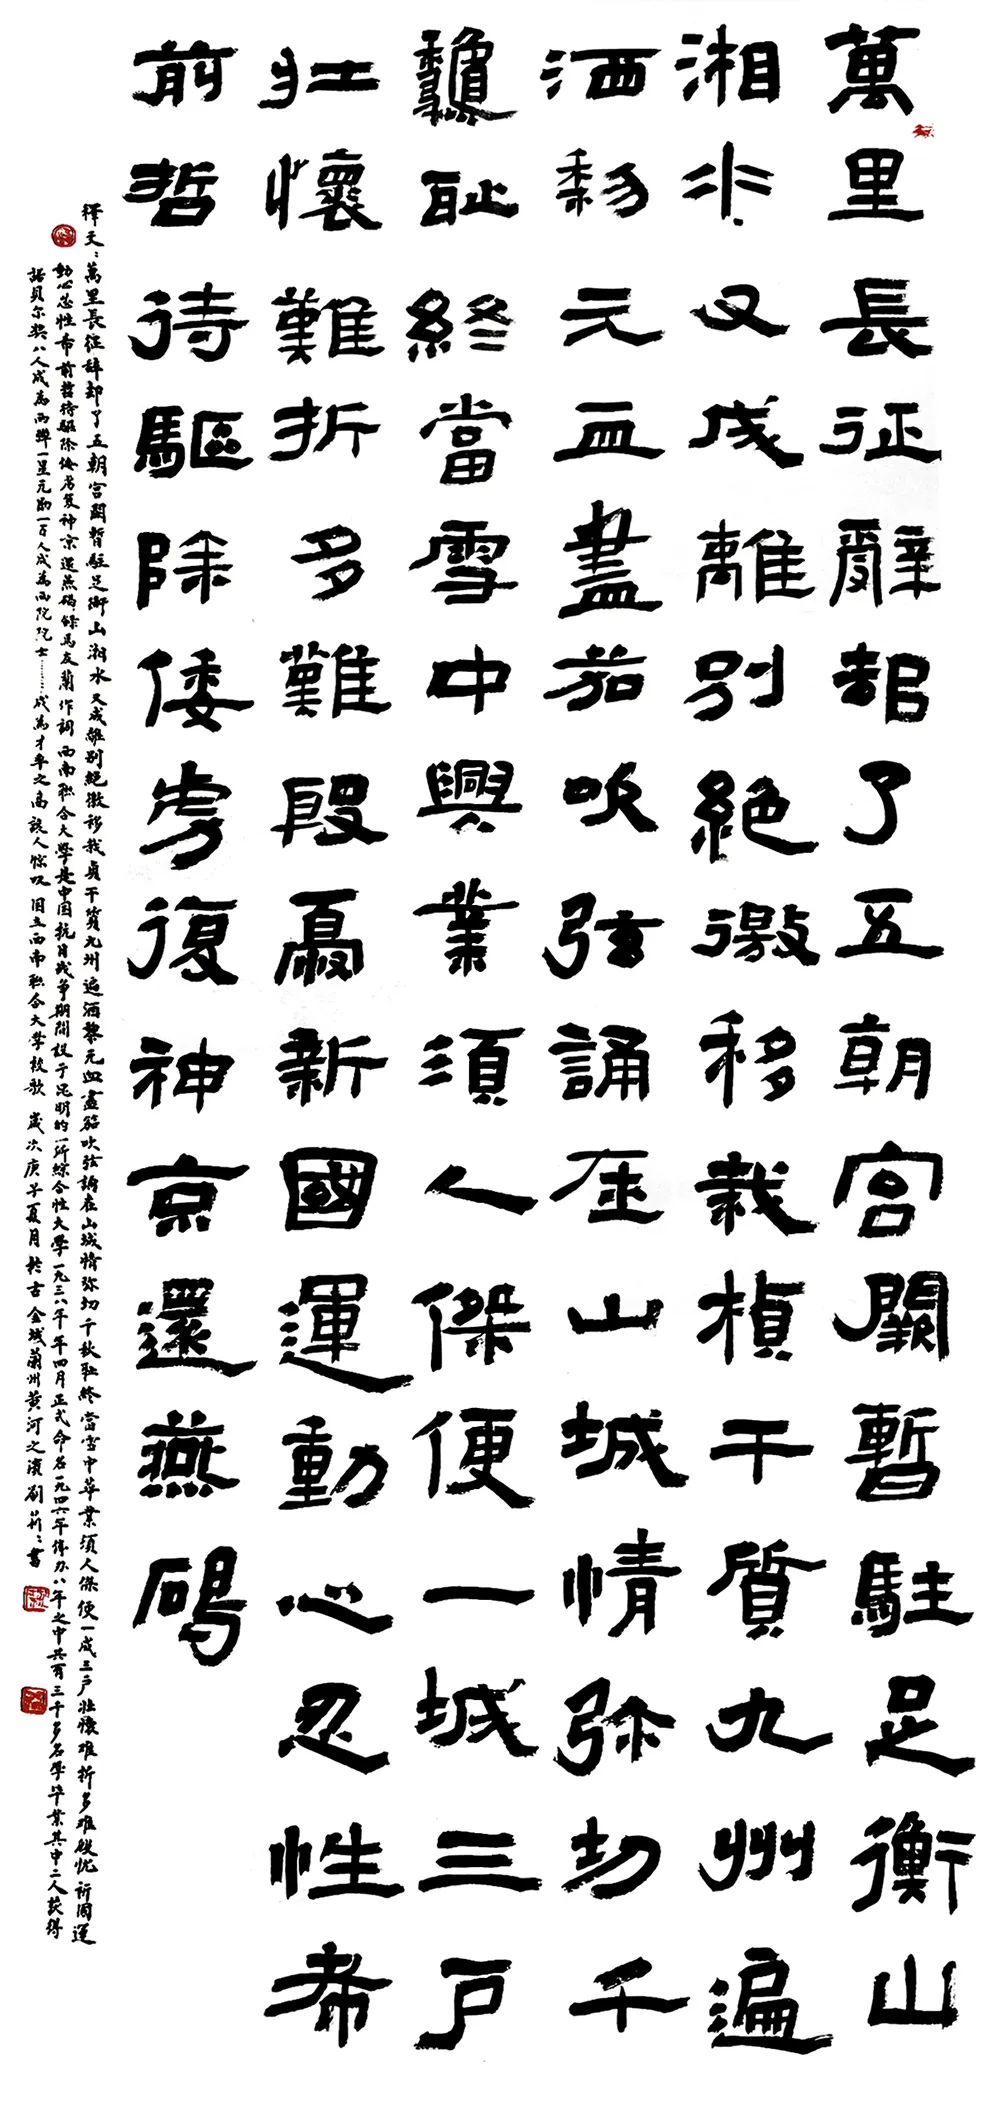 萬里長征辭却了五朝宮闕暫駐足衡山
湘水又成離別絕徼移栽楨干質九州遍
洒黎元血盡笳吹弦誦在山城情弥切千
龝恥終當雪中興業須人傑便一城三戶
壯懷難折多難殷憂新國運動心忍性希
前哲待驅除倭虜復神京還燕碣
释文：萬里長征辞却了五朝宫闕暫駐足衡山湘水又成離别絕徼移栽貞干質九州遍洒黎元血盡笳吹弦誦在山城情弥切千秋耻終當雪中華業須人傑便一成三户壯懷难折多难殷忧新國運
動心忍性希前哲待驅除倭虜复神京還燕碣 馮友蘭作詞 西南联合大學是中国抗日战争期間設于昆明的一所綜合性大學一九三八年年四月正式命名一九四六年停办八年之中共有三千多名學毕業其中二人获得
諾貝尔奖八人成為两弹一星元勋一百人成為两院院士……成為才率之高讓人惊叹 国立西南联合大學校歌 歲次庚子夏月於古金城蘭州黄河之濱 書